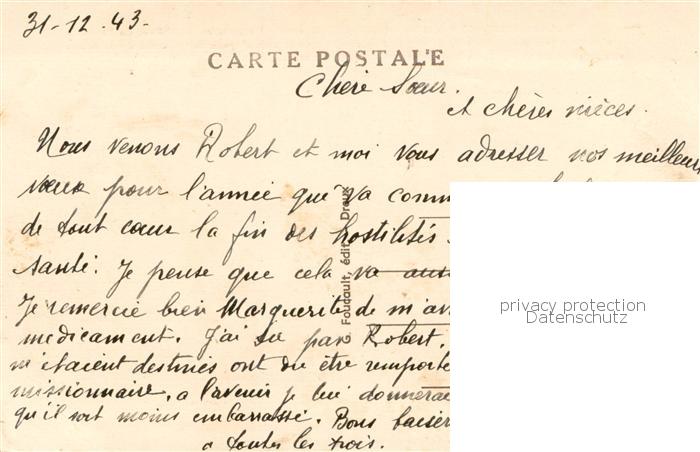 31-12.43.
CARTE POSTALE
Chère Sœur.
et chères nièces.
Nous venons Robert et moi vous adresser nos meilleurs
vœux pour l'année que va comm
de tout cœur la fin des hostilités
santé. Je pense que cela va auss
Je remercie bien Marguerite de m'av
medicament. J'ai su par Robert.
m'étaient destinés ont du être remporte
missionnaire, a l'avenir je lui donnerai
qu'il soit moins embarrassé. Bons baiser
a toutes les trois.
G. Foucault, édit. Dreux
privacy protection
Datenschutz